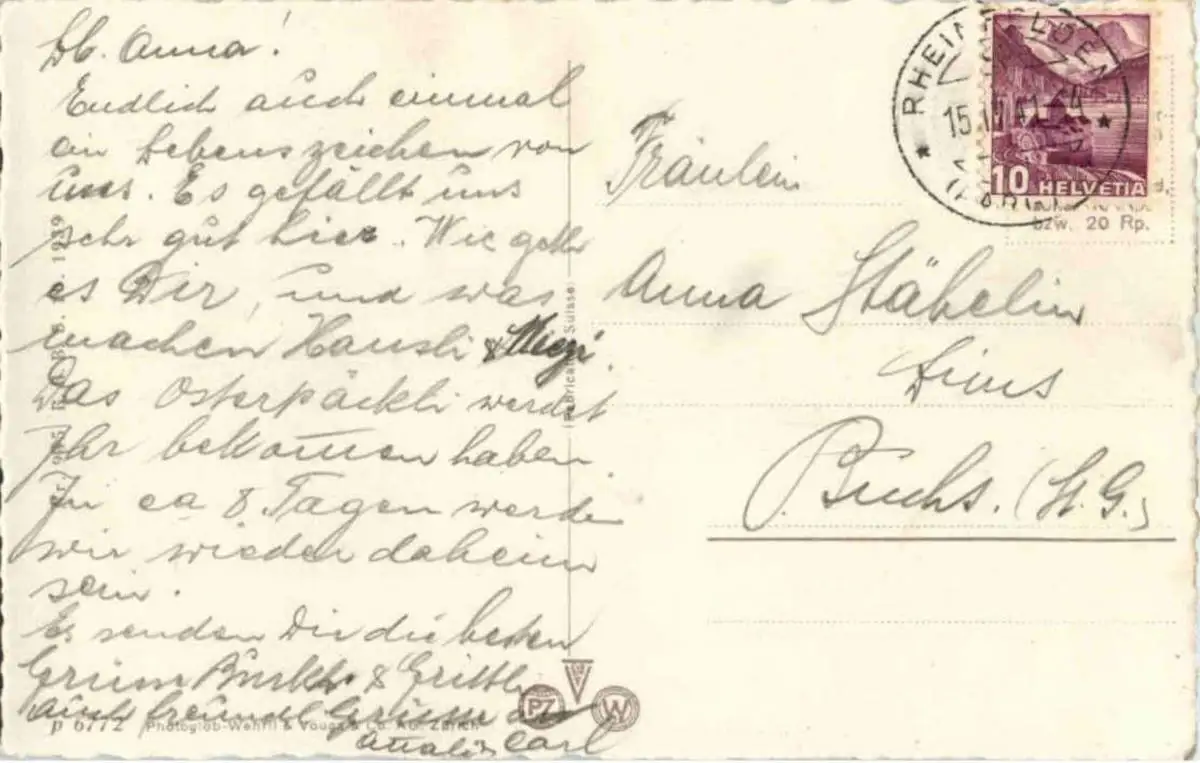 Lb. Anna!
Endlich auch einmal
ein Lebenszeichen von
uns. Es gefällt uns
sehr gut hier. Wie geht
es Dir, und was
machen Hansli &
Das Osterpäckli werdet
Ihr bekommen haben.
In ca 8 Tagen werden
wir wieder daheim
sein.
Es senden Dir die besten
Grüsse Burkh. & Grittli
auch freundl. Grüsse
Carl
Fräulein
Anna Stähelin
Buchs. (St. G.)
RHEINFELDEN
15.
10 HELVETIA
bzw. 20 Rp.
1939
Suisse
PZ
W
p 6772 Photoglob-Wehrli & Vouga & Co. A.G. Zürich